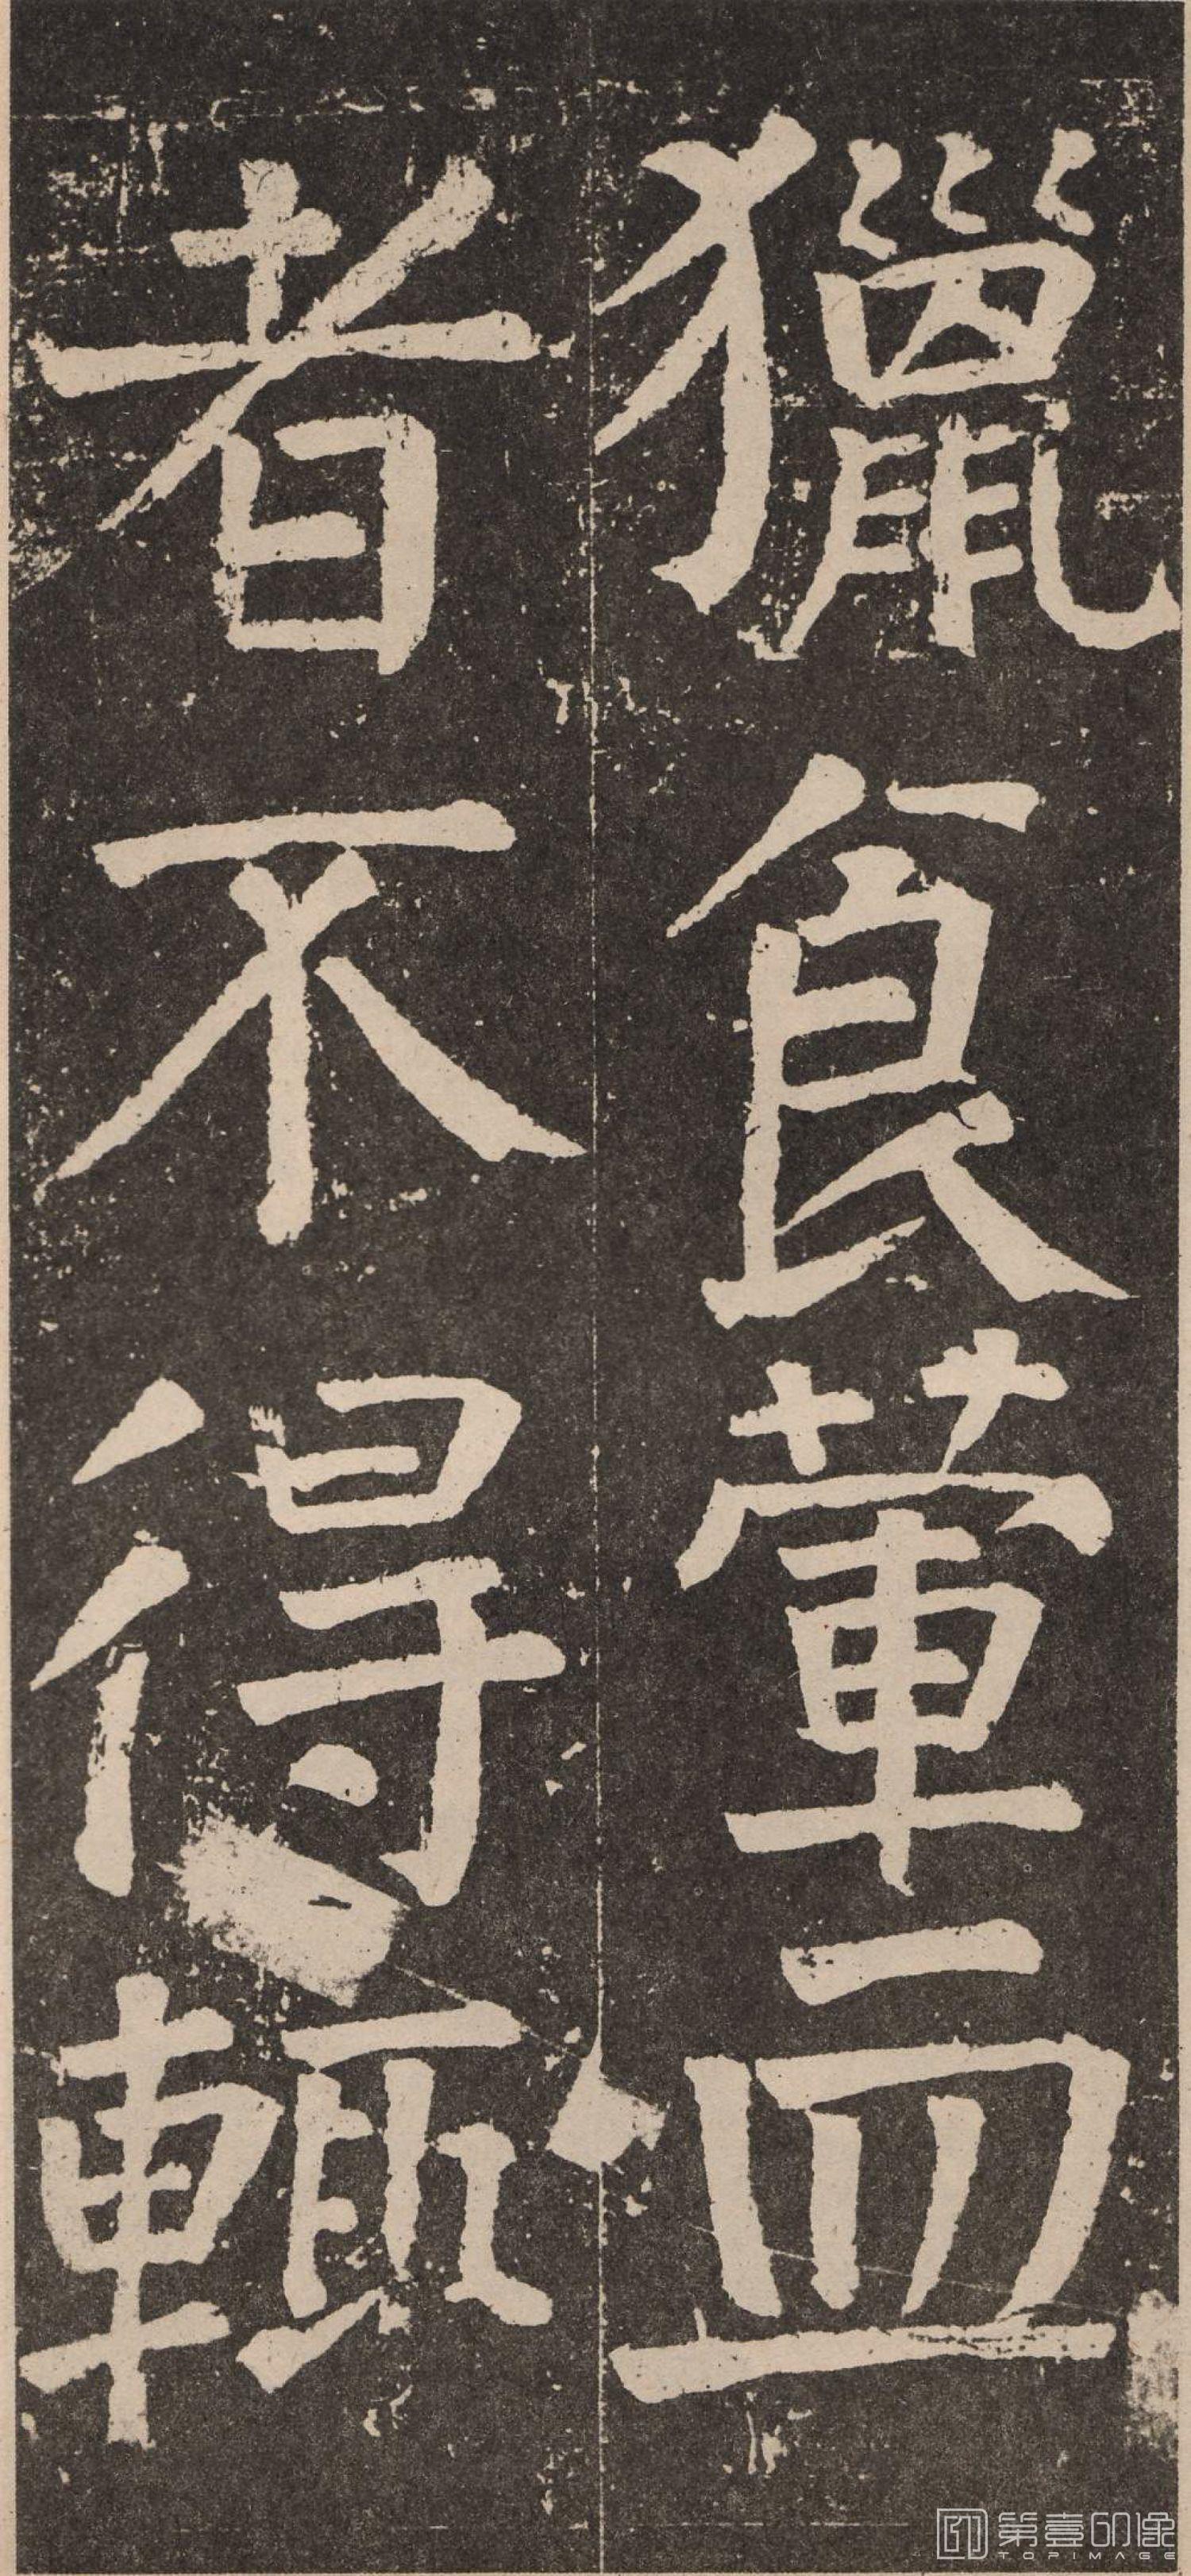 獵食葷血
者不得輒
第壹印像
TOPIMAGE